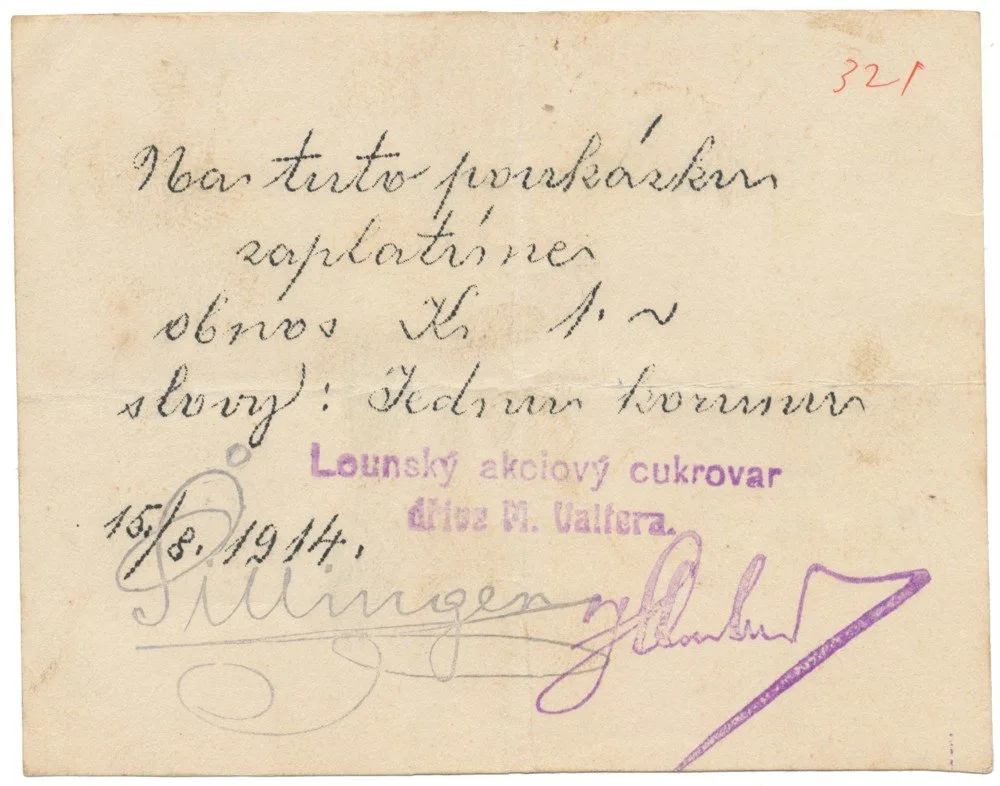 321
Na tuto poukázku
zaplatíme
obnos K. 1.~
slovy: Jednu korunu
Lounský akciový cukrovar
dříve M. Valtera.
15./8. 1914.
Pillinger